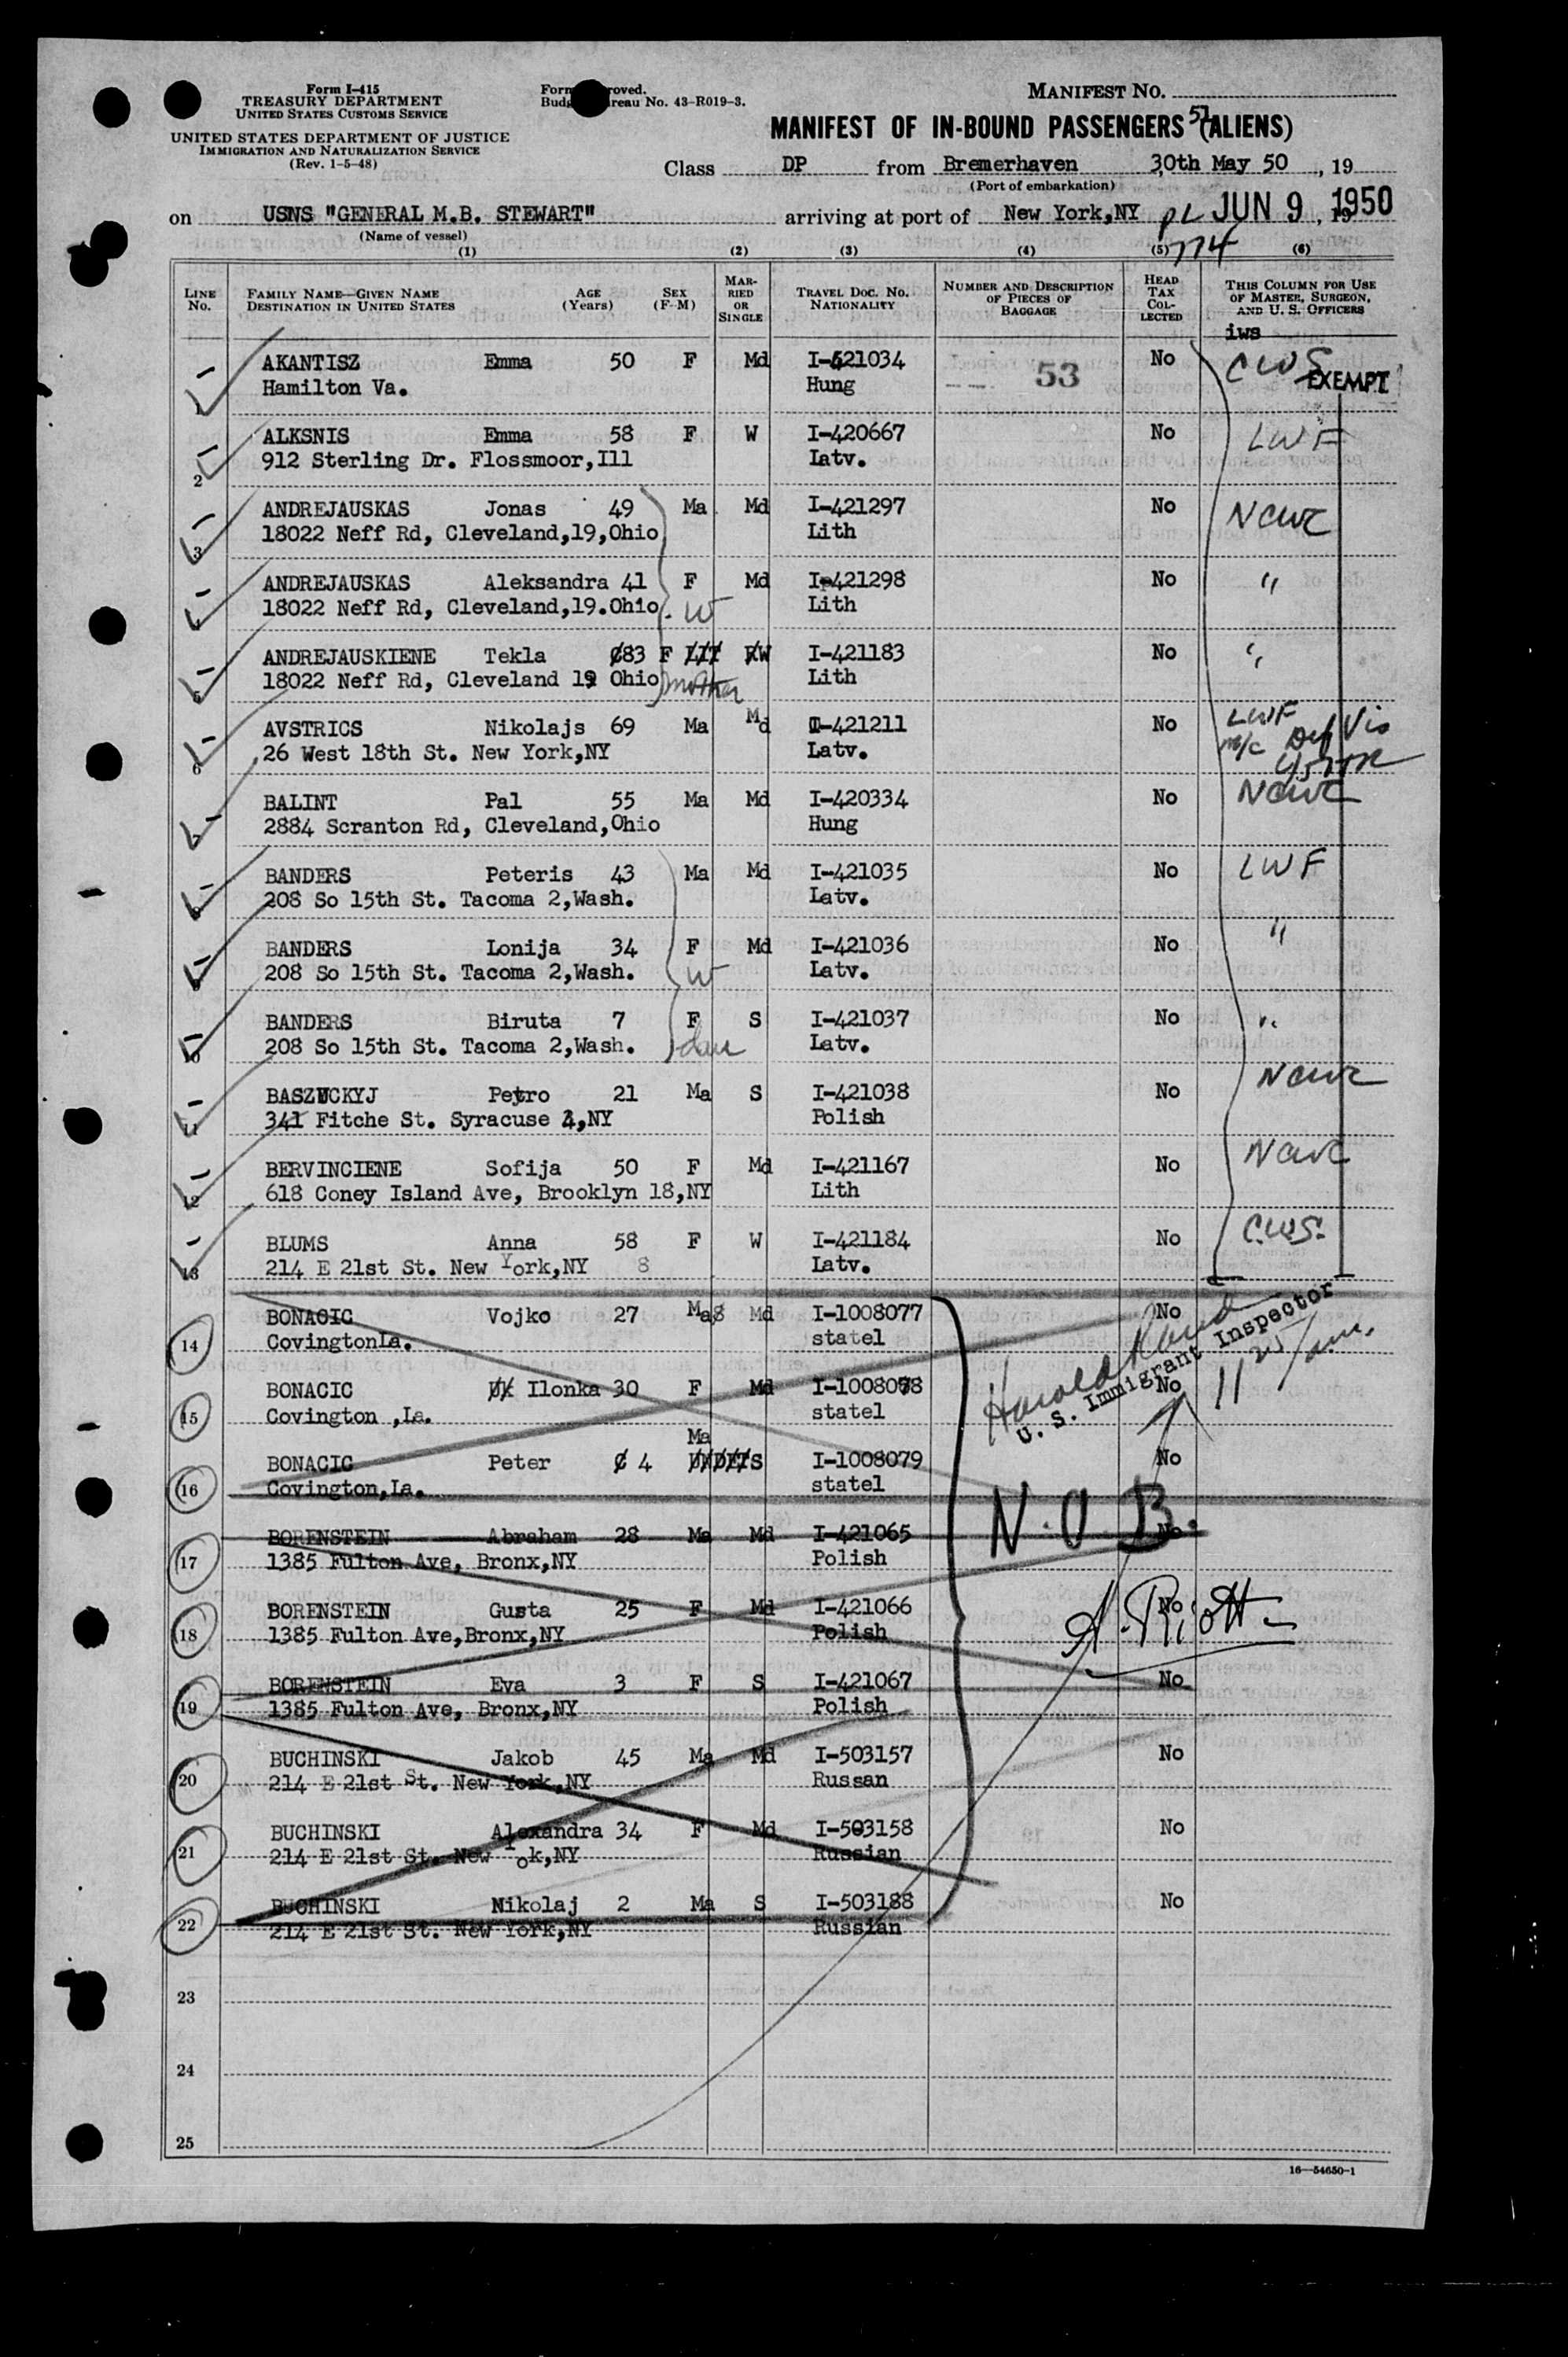 Form I-415
TREASURY DEPARTMENT
UNITED STATES CUSTOMS SERVICE
UNITED STATES DEPARTMENT OF JUSTICE
IMMIGRATION AND NATURALIZATION SERVICE
(Rev. 1-5-48)
Form roved.
Budg reau No. 43-R019-3.
MANIFEST NO.
51
MANIFEST OF IN-BOUND PASSENGERS (ALIENS)
Class DP from Bremerhaven 30th May 50, 19
(Port of embarkation)
on USNS "GENERAL M.B. STEWART" arriving at port of New York,NY JUN 9, 1950
(Name of vessel)
(1) (2) (3) (4) (5) (6)
774
LINE No. FAMILY NAME—GIVEN NAME DESTINATION IN UNITED STATES AGE (Years) SEX (F-M) MARRIED OR SINGLE TRAVEL DOC. NO. NATIONALITY NUMBER AND DESCRIPTION OF PIECES OF BAGGAGE HEAD TAX COLLECTED THIS COLUMN FOR USE OF MASTER, SURGEON, AND U. S. OFFICERS
iws
1 AKANTISZ Emma 50 F Md I-421034 53 No CWS
Hamilton Va. Hung EXEMPT
2 ALKSNIS Emma 58 F W I-420667 No LWF
912 Sterling Dr. Flossmoor,Ill Latv.
3 ANDREJAUSKAS Jonas 49 Ma Md I-421297 No NCWC
18022 Neff Rd, Cleveland,19,Ohio Lith
4 ANDREJAUSKAS Aleksandra 41 F Md I-421298 No "
18022 Neff Rd, Cleveland,19.Ohio. W Lith
5 ANDREJAUSKIENE Tekla 83 F W I-421183 No "
18022 Neff Rd, Cleveland 19 Ohio mother Lith
6 AVSTRICS Nikolajs 69 Ma Md I-421211 No LWF
26 West 18th St. New York,NY Latv. m/c Def Vis
7 BALINT Pal 55 Ma Md I-420334 No NCWC
2884 Scranton Rd, Cleveland,Ohio Hung
8 BANDERS Peteris 43 Ma Md I-421035 No LWF
208 So 15th St. Tacoma 2,Wash. Latv.
9 BANDERS Lonija 34 F Md I-421036 No "
208 So 15th St. Tacoma 2,Wash. W Latv.
10 BANDERS Biruta 7 F S I-421037 No "
208 So 15th St. Tacoma 2,Wash. dau Latv.
11 BASZUCKYJ Petro 21 Ma S I-421038 No NCWC
341 Fitche St. Syracuse 4,NY Polish
12 BERVINCIENE Sofija 50 F Md I-421167 No NCWC
618 Coney Island Ave, Brooklyn 18,NY Lith
13 BLUMS Anna 58 F W I-421184 No C.W.S.
214 E 21st St. New York,NY 8 Latv.
14 BONACIC Vojko 27 Ma Md I-1008077 No
CovingtonLa. statel
Harold
U. S. Immigrant Inspector
11 25/am.
15 BONACIC Ilonka 30 F Md I-1008078 No
Covington ,La. statel
16 BONACIC Peter 4 Ma S I-1008079 No
Covington,La. statel
N.O.B.
17 BORENSTEIN Abraham 28 Ma Md I-421065 No
1385 Fulton Ave, Bronx,NY Polish
18 BORENSTEIN Gusta 25 F Md I-421066 No
1385 Fulton Ave,Bronx,NY Polish
A. Riott
19 BORENSTEIN Eva 3 F S I-421067 No
1385 Fulton Ave, Bronx,NY Polish
20 BUCHINSKI Jakob 45 Ma Md I-503157 No
214 E 21st St. New York,NY Russan
21 BUCHINSKI Alexandra 34 F Md I-503158 No
214 E 21st St. New Yok,NY Russian
22 BUCHINSKI Nikolaj 2 Ma S I-503188 No
214 E 21st St. New York,NY Russian
23
24
25
16—54650-1